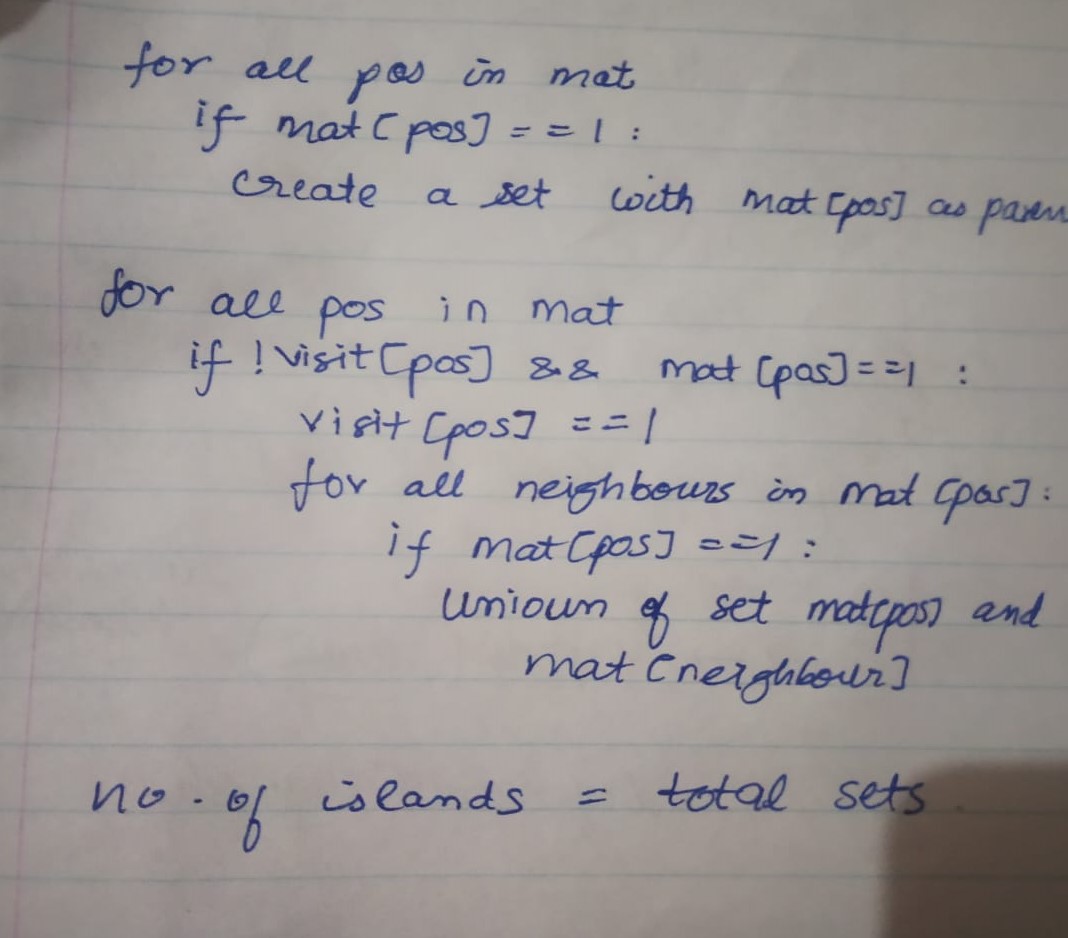 for all pos in mat
if mat[pos] == 1 :
create a set with mat[pos] as paren
for all pos in mat
if ! visit[pos] && mat[pos]==1 :
visit[pos] == 1
for all neighbours in mat[pos]:
if mat[pos] ==1 :
Unioun of set mat[pos] and
mat[neighbour]
no. of islands = total sets